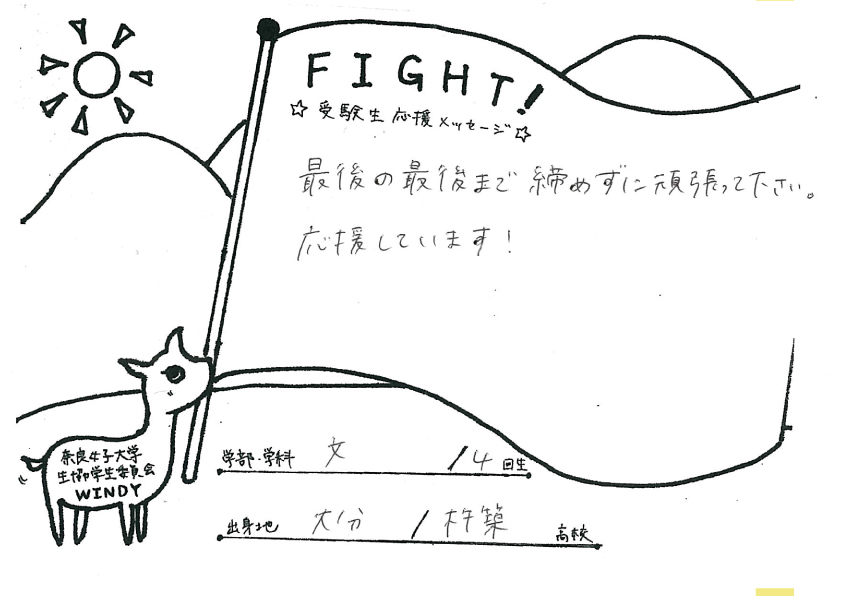 FIGHT!
☆受験生応援メッセージ☆
最後の最後まで締めずに頑張って下さい。
応援しています!
学部・学科 文 /4 回生
出身地 大分 /杵築 高校
奈良女子大学
生協学生委員会
WINDY